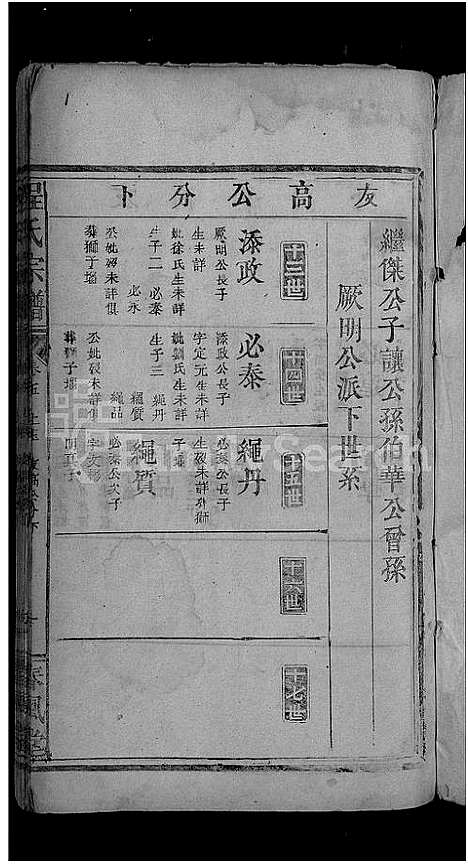 友高公分下
繼傑公子讓公孫伯華公曾孫
厥明公派下世系
十三世
添政
厥明公長子
生未詳
妣徐氏生未詳
生子二 必泰
必永
公妣歿未詳俱
葬獅子墦
十四世
必泰
添政公長子
字定元生未詳
妣劉氏生未詳
生子三 繩丹
繩質
繩品
公妣歿未詳俱
葬獅子墦
十五世
繩丹
必泰公長子
生歿未詳葬獅
子墦
繩質
必泰公次子
字文
明真子
十六世
十七世
程氏宗譜